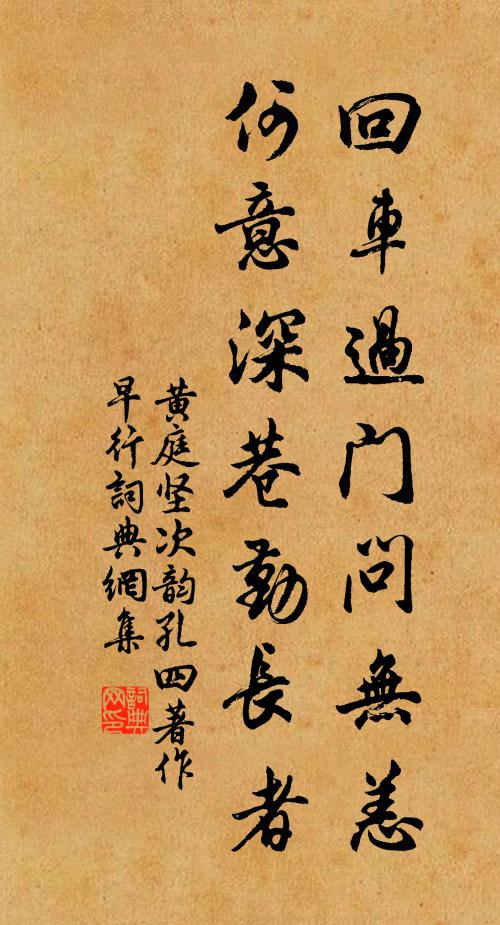 回車過门问無恙
何意深巷勤長者
黄庭坚次韵孔四著作
早行詞典網集
詞典
网印